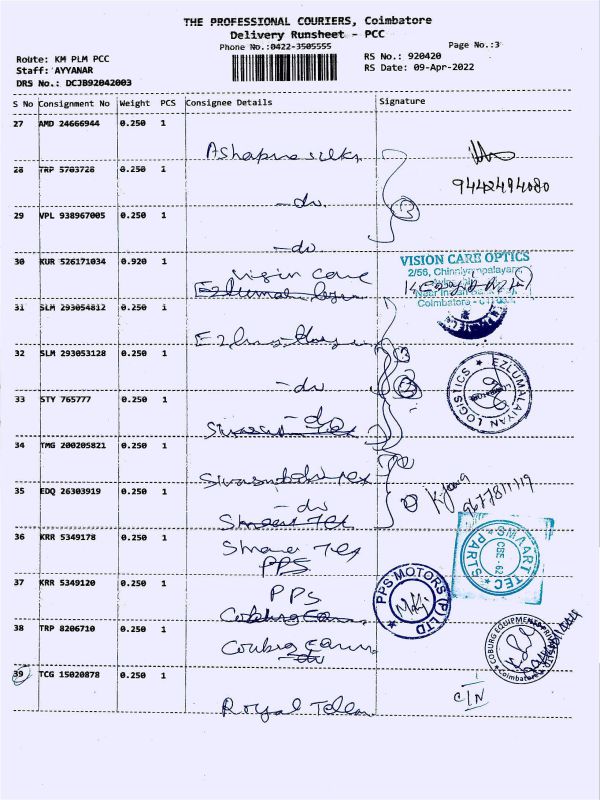 THE PROFESSIONAL COURIERS, Coimbatore
Delivery Runsheet - PCC
Phone No.:0422-3505555
Page No.:3
Route: KM PLM PCC
RS No.: 920420
Staff: AYYANAR
RS Date: 09-Apr-2022
DRS No.: DCJB92042003
S No Consignment No Weight PCS Consignee Details Signature
27 AMD 24666944 0.250 1
Ashapura silks
28 TRP 5703728 0.250 1
9442494080
-do
3
29 VPL 938967005 0.250 1
-do
30 KUR 526171034 0.920 1
VISION CARE OPTICS
2/56, Chinniyampalayam,
Coimbatore -
vision care
31 SLM 293054812 0.250 1
32 SLM 293053128 0.250 1
-do
EZLUMALAIYAN LOGISTICS
33 STY 765777 0.250 1
-do
34 TMG 200205821 0.250 1
35 EDQ 26303919 0.250 1
-do
9677811119
36 KRR 5349178 0.250 1
SMAART TEC PARTS
CBE - 62
PPS
37 KRR 5349120 0.250 1
PPS MOTORS (P) LTD
PPS
38 TRP 8206710 0.250 1
COBURG EQUIPMENTS
Coimbatore
-do
39 TCG 15020878 0.250 1
C/N
Royal